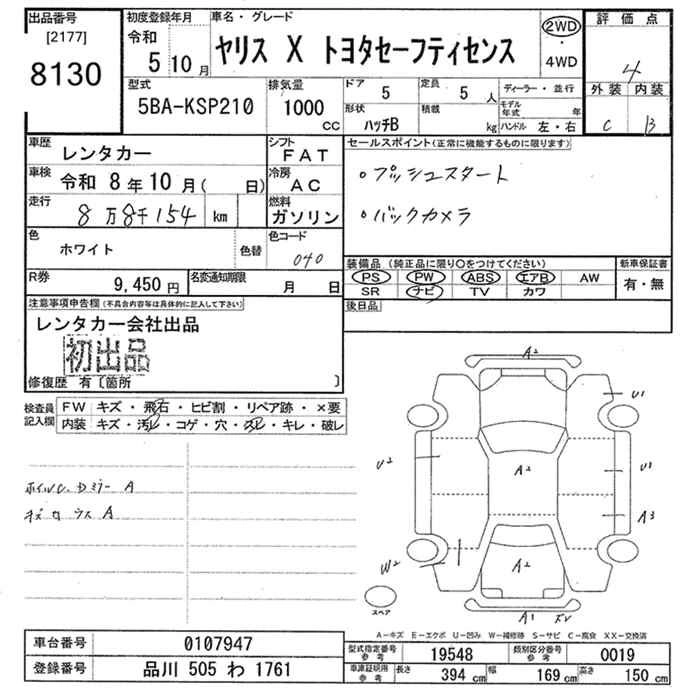 出品番号
[2177]
8130
初度登録年月
令和
5 10 月
車名・グレード
ヤリス X トヨタセーフティセンス
2WD
・
4WD
評価点
4
外装 内装
C B
型式
5BA-KSP210
排気量
1000
CC
ドア
5
定員
5 人
形状
ハッチB
積載
kg
ディーラー・並行
モデル年式 年
ハンドル 左・右
車歴
レンタカー
シフト
FAT
車検
令和 8 年 10 月 ( 日)
冷房
AC
走行
8万8千154 km
燃料
ガソリン
色
ホワイト
色替
色コード
040
R券
9,450 円
名変通知期限
月 日
セールスポイント(正常に機能するものに限ります)
・プッシュスタート
・バックカメラ
装備品(純正品に限り○をつけてください)
PS PW ABS エアB AW
SR ナビ TV カワ
新車保証書
有・無
後日品
注意事項申告欄(不具合内容等は具体的に記入して下さい)
レンタカー会社出品
初出品
修復歴 有〔箇所 〕
検査員
記入欄
FW キズ・飛石・ヒビ割・リペア跡・×要
内装 キズ・汚レ・コゲ・穴・スレ・キレ・破レ
A2
U1
U2
A2
U1
A3
W2
A2
A1
スペア
A-キズ E-エクボ U-凹み W-補修跡 S-サビ C-腐食 XX-交換済
車台番号
0107947
登録番号
品川 505 わ 1761
型式指定番号
参考
19548
類別区分番号
参考
0019
車庫証明用
参考
長さ 394 cm 幅 169 cm 高さ 150 cm